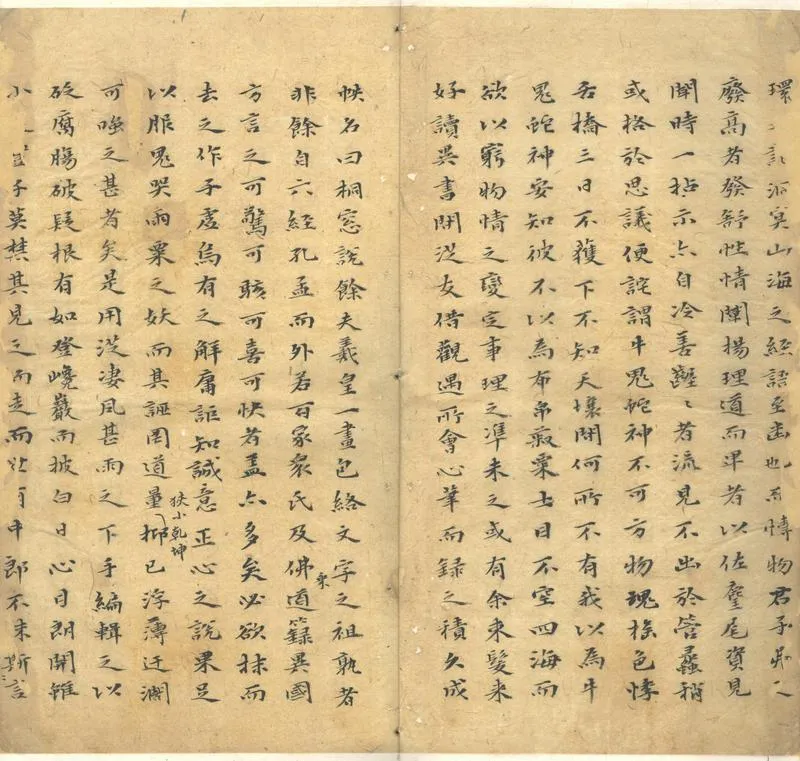 環〻記洞冥山海之經語至幽也而博物君子
廢高者發舒性情闡揚理道而卑者以佐麈尾資見
聞時一拈示亦自冷善齷〻者流見不出於管蠡稍
或格於思議便詫謂牛鬼蛇神不可方物瑰怪色悸
舌橋三日不獲下不知天壤間何所不有我以為牛
鬼蛇神安知彼不以為布帛菽粟士目不空四海而
欲以窮物情之變定事理之準未之或有余束髮來
好讀異書間從友借觀遇所會心筆而録之積久成
帙名曰桐窓說餘夫羲皇一畫包絡文字之祖孰者
非餘自六經孔孟而外若百家衆氏及佛乘道籙異國
方言之可驚可駭可喜可快者盖亦多矣必欲抹而
去之作子虛烏有之解庸詎知誠意正心之說果足
以服鬼哭雨粟之妖而其誣罔道量狹小乾坤抑已浮薄迂濶
可嗤之甚者矣是用從凄風甚雨之下手編輯之以
砭腐腸破疑根有如登巉巖而披白日心目朗開雖
小子莫禁其見之而走而有中郎不來斯言